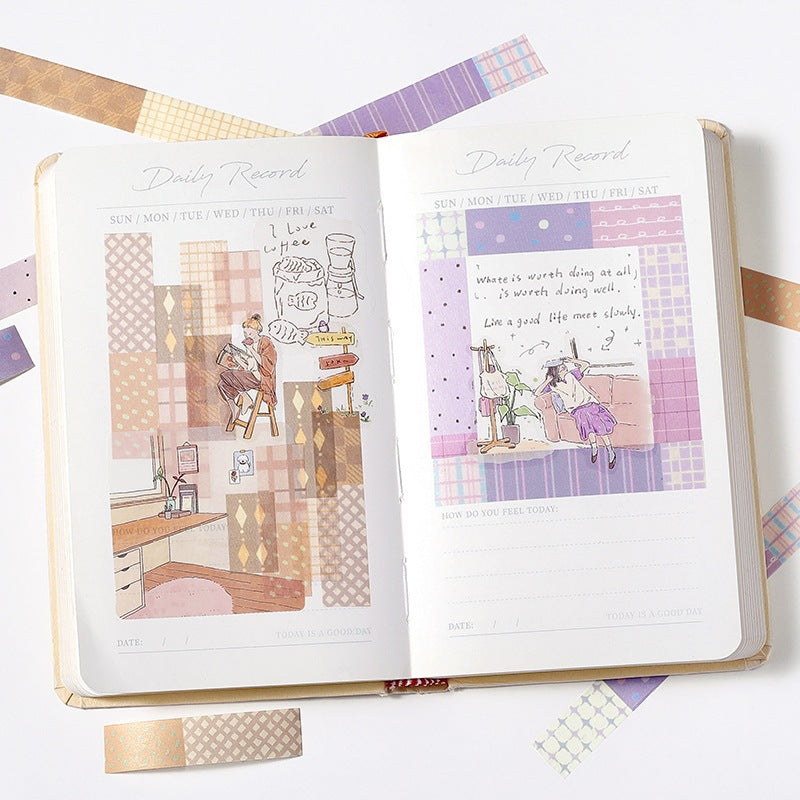 Daily Record
SUN / MON / TUE / WED / THU / FRI / SAT
I love
coffee
THIS WAY
HOW DO YOU FEEL TODAY
DATE: / /
TODAY IS A GOOD DAY
Daily Record
SUN / MON / TUE / WED / THU / FRI / SAT
Whate is worth doing at all,
is worth doing well.
Live a good life meet slowly.
HOW DO YOU FEEL TODAY:
DATE: / /
TODAY IS A GOOD DAY